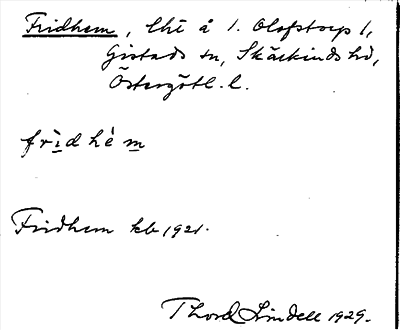 Fridhem, lht å 1. Olofstorp 1,
Gistads sn, Skärkinds hd,
Östergötl. l.
frìdhèm
Fridhem kb 1921.
Thord Lindell 1929.